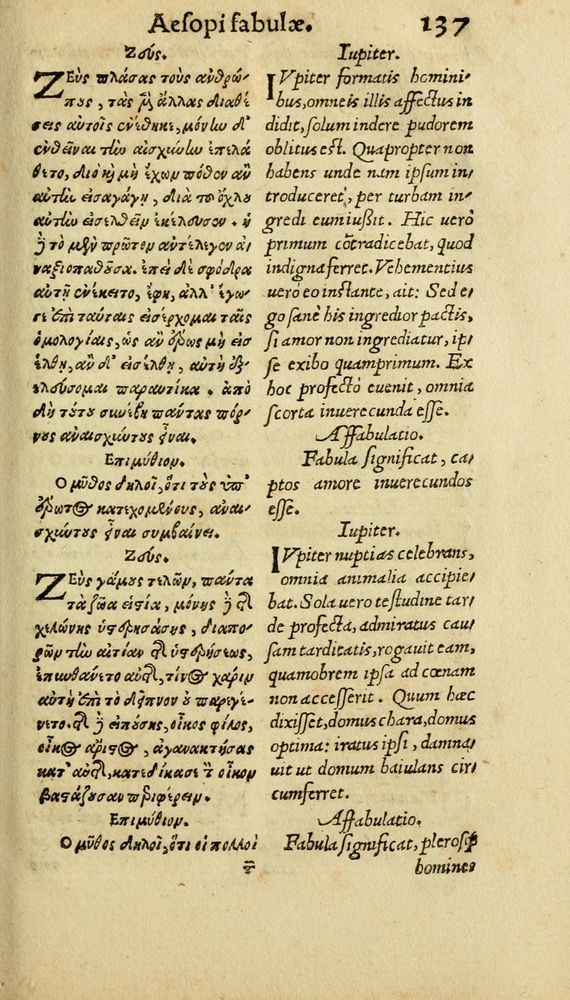 Aesopi fabulæ. 137
Ζεύς.
ΖΕὺς πλάσας τοὺς ἀνθρώ-
πους, τὰς μὲν ἄλλας διαθέ
σεις αὐτοῖς ἐνέθηκε, μόνην δ᾽
ἐνθεῖναι τὴν αἰσχύνην ἐπελά
θετο, διὸ καὶ μὴ ἔχων πόθεν ἂν
αὐτὴν εἰσαγάγῃ, διὰ τοῦ ὄχλου
αὐτὴν εἰσελθεῖν ἐκέλευσεν. ἡ
δὲ τὸ μὲν πρῶτον ἀντέλεγεν ἀ-
ναξιοπαθοῦσα. ἐπεὶ δὲ σφόδρα
αὐτῇ ἐνέκειτο, ἔφη, ἀλλ᾽ ἔγω-
γε ἐπὶ ταύταις εἰσέρχομαι ταῖς
ὁμολογίαις, ὡς ἂν ἔρως μὴ εἰσ
έλθῃ, ἂν δ᾽ εἰσέλθῃ, αὐτὴ ἐξ-
ελεύσομαι παραυτίκα. ἀπὸ
δὴ τούτου συνέβη πάντας πόρ-
νους ἀναισχύντους εἶναι.
Ἐπιμύθιον.
Ο μῦθος δηλοῖ, ὅτι τοὺς ὑπ᾽
ἔρωτος κατεχομένους, ἀναι-
σχύντους εἶναι συμβαίνει.
Ζεύς.
ΖΕὺς γάμους τελῶν, πάντα
τὰ ζῶα εἱστία, μόνης δὲ τῆς
χελώνης ὑστερησάσης, διαπο-
ρῶν τὴν αἰτίαν τῆς ὑστερήσεως,
ἐπυνθάνετο αὐτῆς, τίνος χάριν
αὐτὴ ἐπὶ τὸ δεῖπνον οὐ παρεγέ-
νετο. τῆς δὲ εἰπούσης, οἶκος φίλος,
οἶκος ἄριστος, ἀγανακτήσας
κατ᾽ αὐτῆς, κατεδίκασε τὸν οἶκον
βαστάζουσαν περιφέρειν.
Ἐπιμύθιον.
Ο μῦθος δηλοῖ, ὅτι οἱ πολλοὶ
Iupiter.
IVpiter formatis homini
bus, omneis illis affectus in
didit, solum indere pudorem
oblitus est. Quapropter non
habens unde nam ipsum in
troduceret, per turbam in-
gredi eum iußit. Hic uerò
primum cōtradicebat, quod
indigna ferret. Vehementius
uerò eo instante, ait: Sed e-
go sanè his ingredior pactis,
si amor non ingrediatur, ip-
se exibo quamprimum. Ex
hoc profectò euenit, omnia
scorta inuerecunda esse.
Affabulatio.
Fabula significat, ca-
ptos amore inuerecundos
esse.
Iupiter.
IVpiter nuptias celebrans,
omnia animalia accipie-
bat. Sola uero testudine tar-
de profecta, admiratus cau-
sam tarditatis, rogauit eam,
quamobrem ipsa ad cœnam
non accesserit. Quum hæc
dixisset, domus chara, domus
optima: iratus ipsi, damna-
uit ut domum baiulans cir
cumferret.
Affabulatio.
Fabula significat, plerosq;
homines